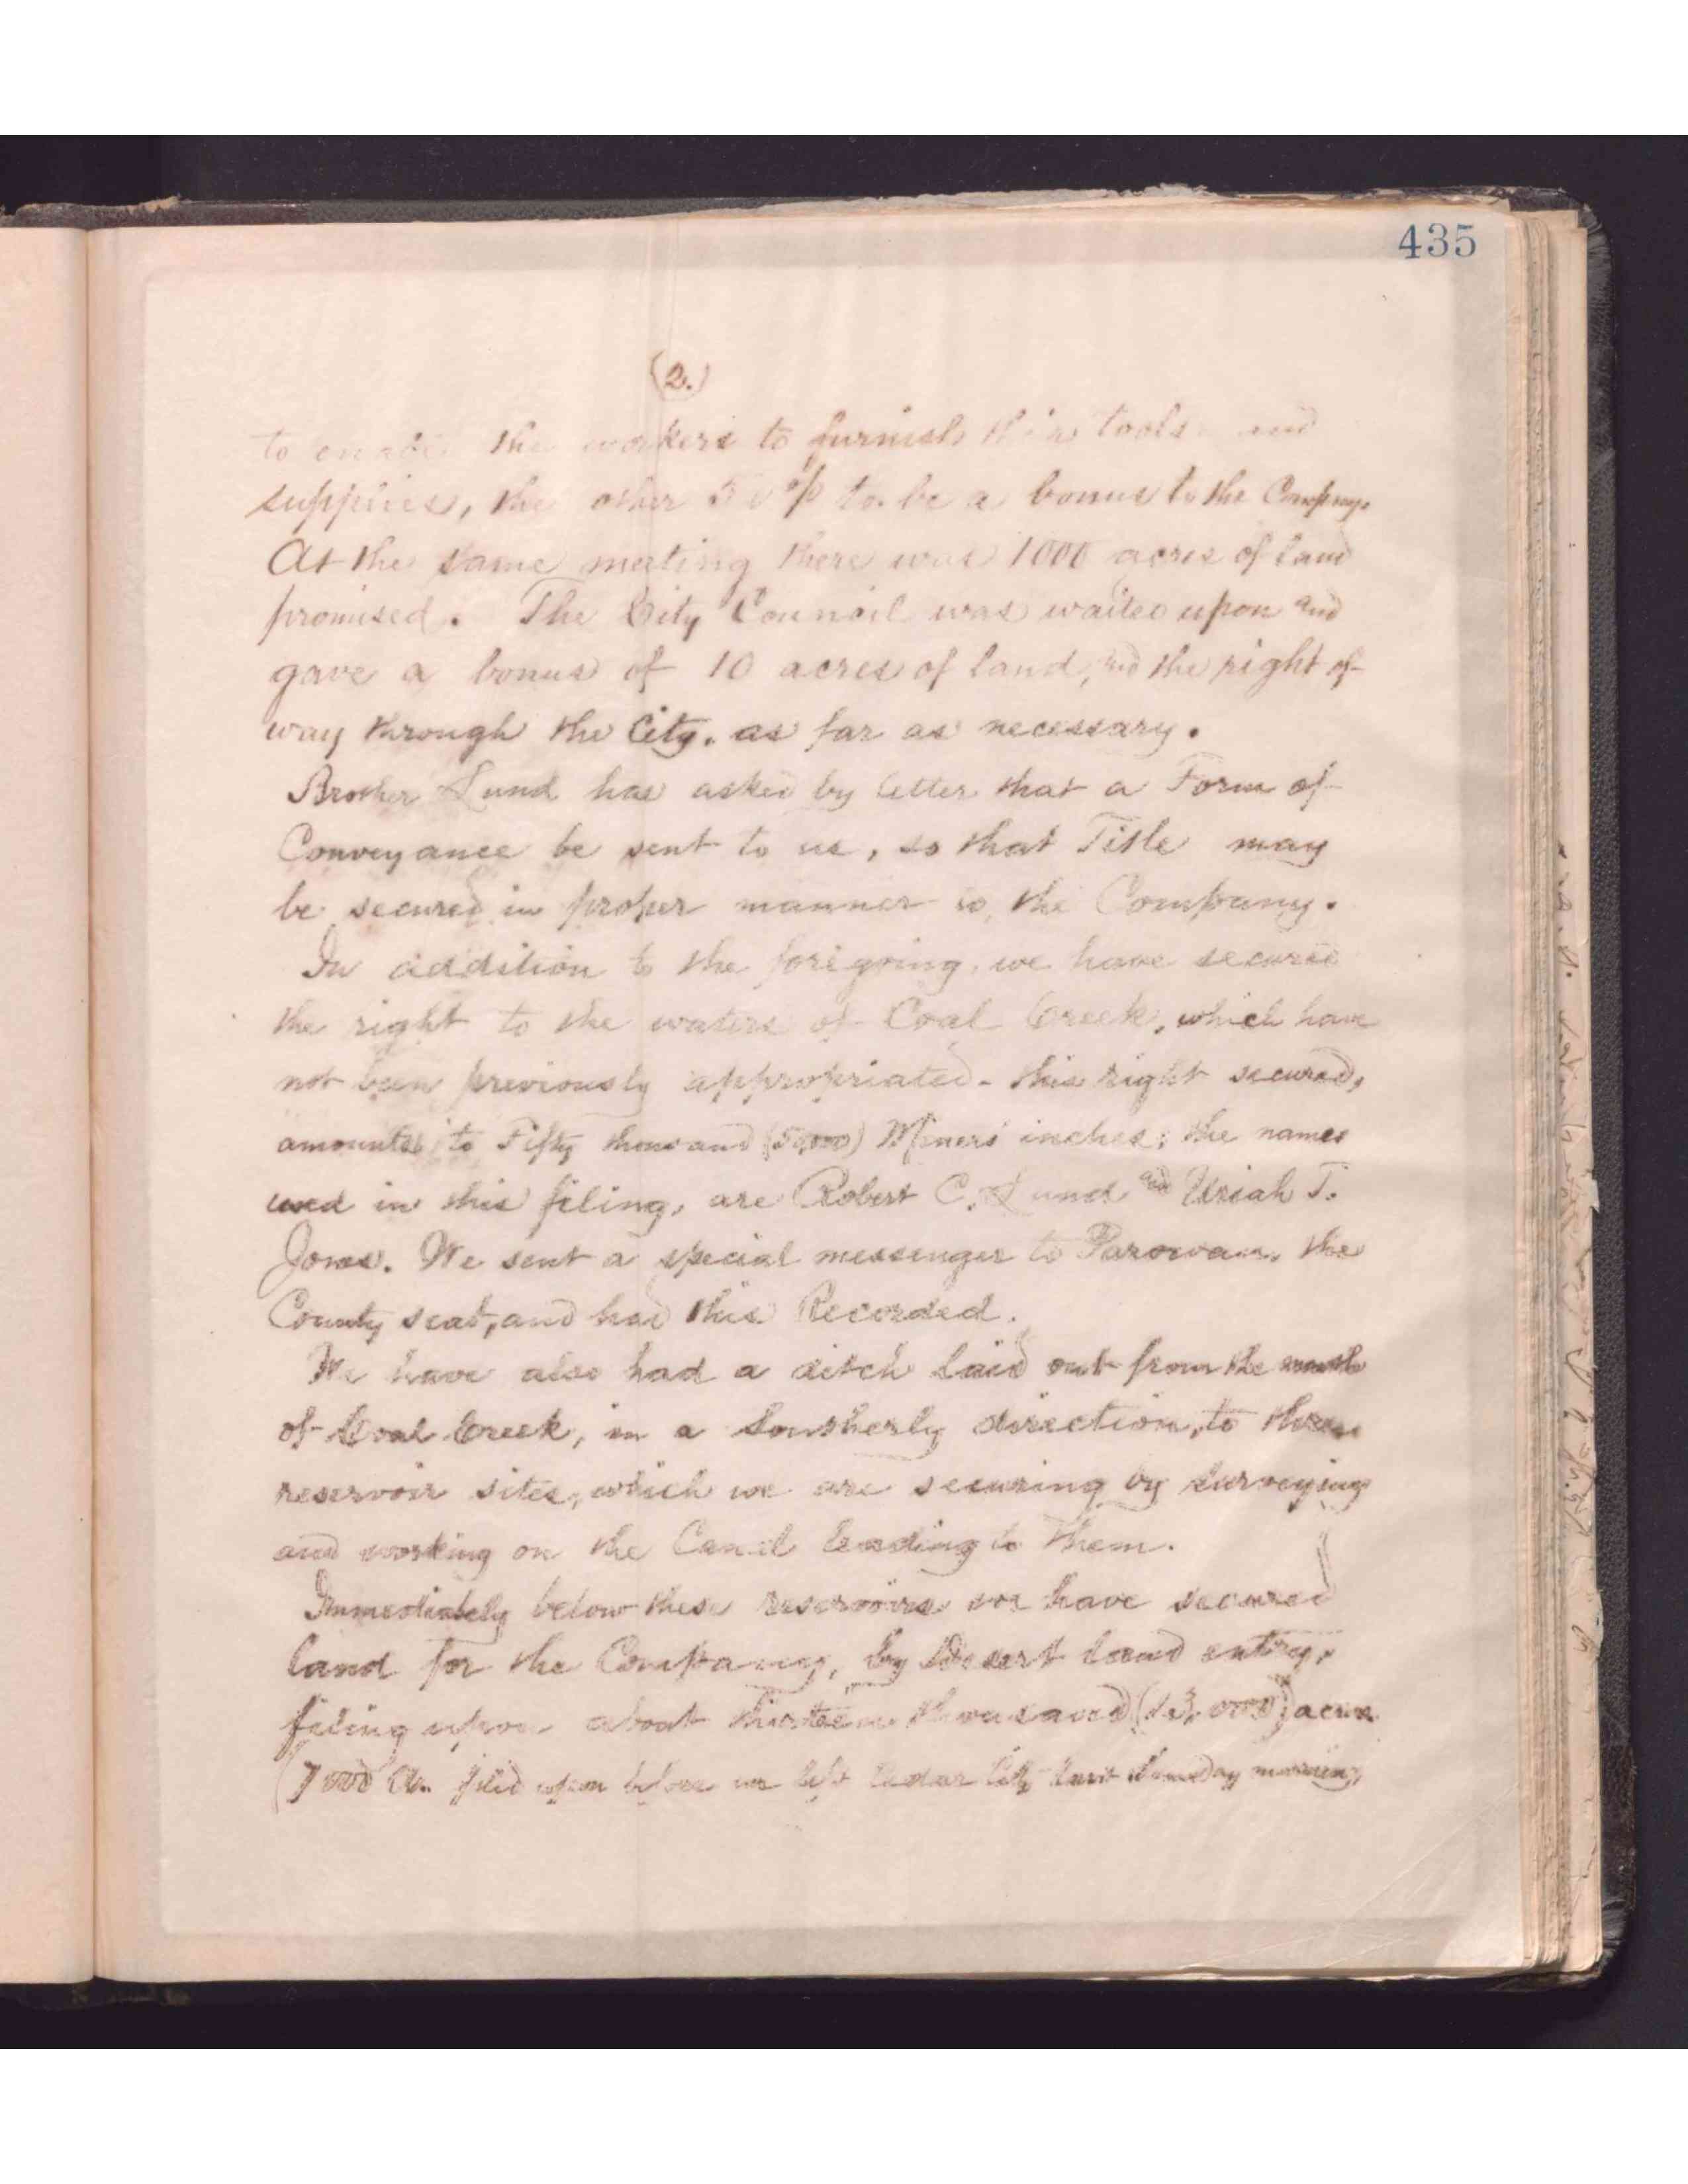 435
(2.)
to enable the workers to furnish their tools and
supplies, the other 50% to be a bonus to the Company.
At the same meeting there was 1000 acres of land
promised. The City Council was waited upon and
gave a bonus of 10 acres of land, and the right of
way through the City, as far as necessary.
Brother Lund has asked by letter that a Form of
Conveyance be sent to us, so that Title may
be secured in proper manner to the Company.
In addition to the foregoing, we have secured
the right to the waters of Coal Creek, which have
not been previously appropriated - this right secured,
amounts to Fifty thousand (50,000) Miners' inches; the names
used in this filing, are Robert C. Lund and Uriah T.
Jones. We sent a special messenger to Parowan, the
County seat, and had this Recorded.
We have also had a ditch laid out from the mouth
of Coal Creek, in a Southerly direction, to three
reservoir sites, which we are securing by surveying
and working on the Canal leading to them.
Immediately below these reservoirs we have secured
land for the Company, by Desert land entry,
filing upon about thirteen thousand (13,000) acres
(7000 filed upon before we left Cedar City last morning,